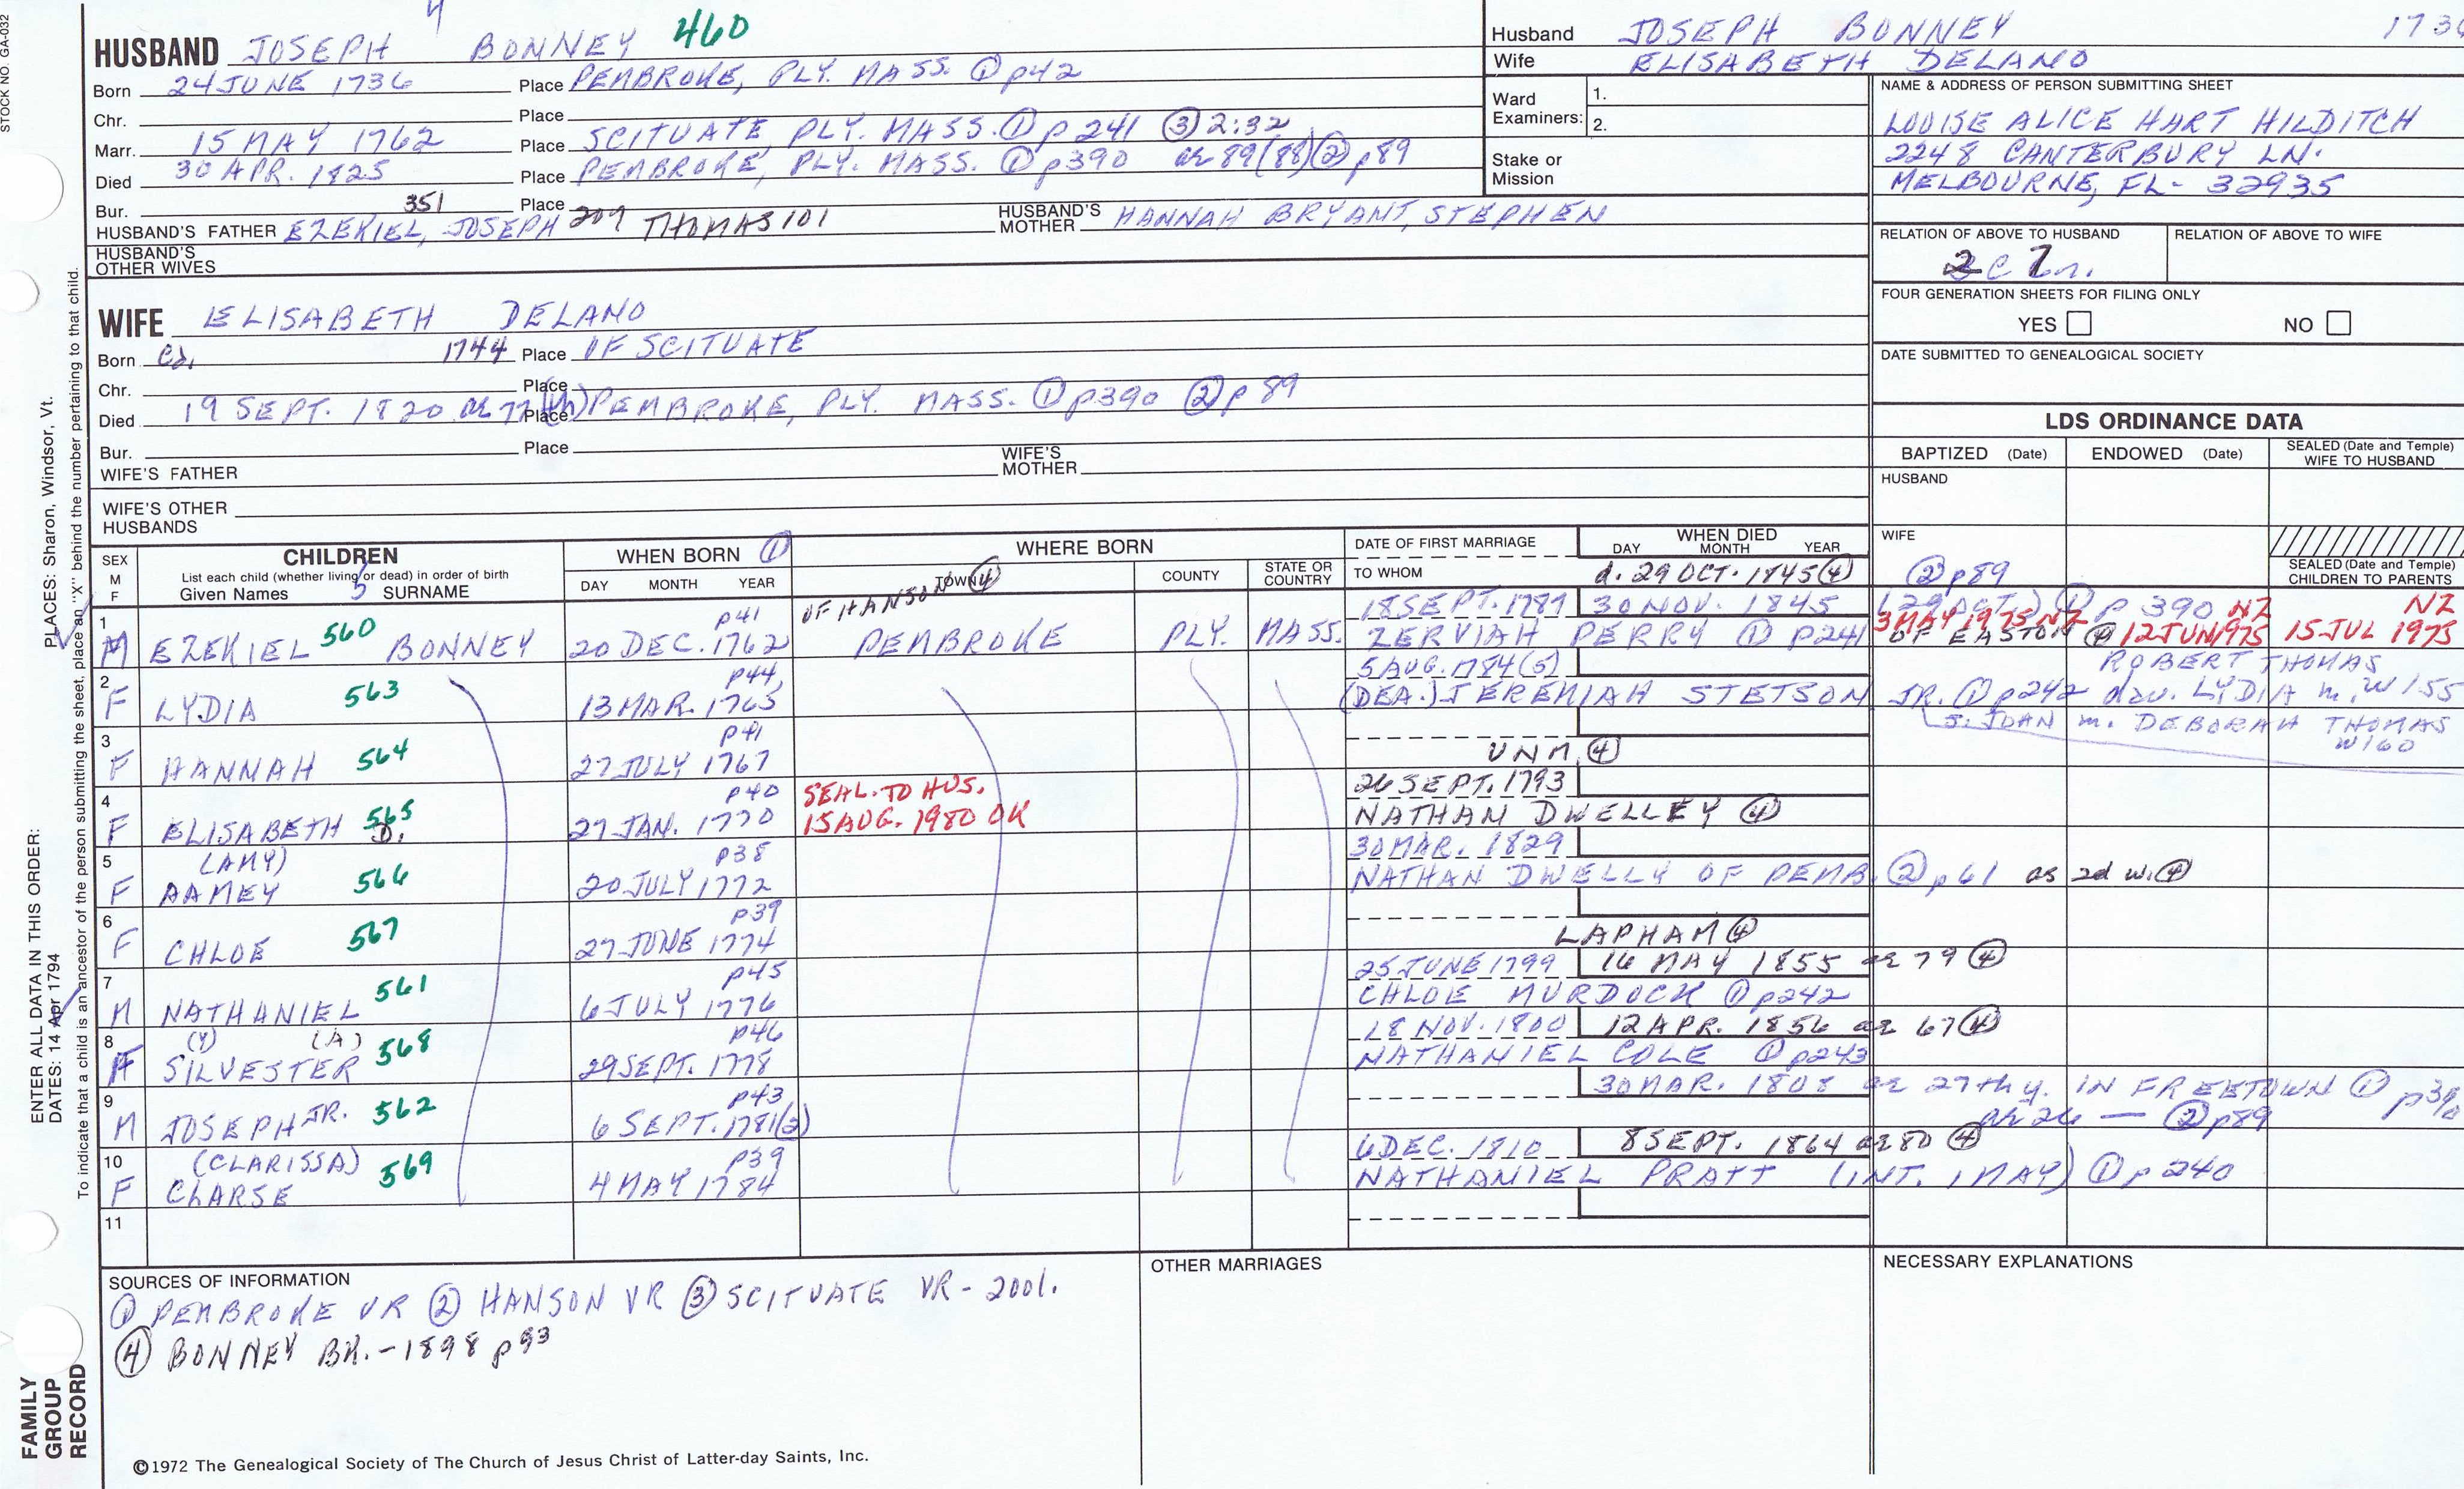 STOCK NO. GA-032
4
HUSBAND JOSEPH BONNEY 460
Born 24 JUNE 1736 Place PEMBROKE, PLY. MASS. ① p42
Chr. Place
Marr. 15 MAY 1762 Place SCITUATE, PLY. MASS. ① p 241 ③ 2:32
Died 30 APR. 1825 Place PEMBROKE, PLY. MASS. ① p390 ae 89 (88) ② p89
Bur. 351 Place
HUSBAND'S FATHER EZEKIEL, JOSEPH 207 THOMAS 101 HUSBAND'S MOTHER HANNAH BRYANT, STEPHEN
HUSBAND'S OTHER WIVES
Husband JOSEPH BONNEY 1736
Wife ELISABETH DELANO
Ward Examiners: 1.
2.
Stake or Mission
NAME & ADDRESS OF PERSON SUBMITTING SHEET
LOUISE ALICE HART HILDITCH
2248 CANTERBURY LN.
MELBOURNE, FL- 32935
RELATION OF ABOVE TO HUSBAND RELATION OF ABOVE TO WIFE
2 C 7 r.
FOUR GENERATION SHEETS FOR FILING ONLY
YES NO
DATE SUBMITTED TO GENEALOGICAL SOCIETY
WIFE ELISABETH DELANO
Born Ca. 1744 Place OF SCITUATE
Chr. Place
Died 19 SEPT. 1820 ae 77 (th) Place PEMBROKE, PLY. MASS. ① p390 ② p 89
Bur. Place
WIFE'S FATHER WIFE'S MOTHER
WIFE'S OTHER HUSBANDS
LDS ORDINANCE DATA
BAPTIZED (Date) ENDOWED (Date) SEALED (Date and Temple) WIFE TO HUSBAND
HUSBAND
WIFE
SEALED (Date and Temple) CHILDREN TO PARENTS
SEX M F
CHILDREN
List each child (whether living or dead) in order of birth
Given Names 5 SURNAME
WHEN BORN ①
DAY MONTH YEAR
WHERE BORN
TOWN ④ COUNTY STATE OR COUNTRY
DATE OF FIRST MARRIAGE
TO WHOM
WHEN DIED
DAY MONTH YEAR
d. 29 OCT. 1845 ④ ② p89
p41 OF HANSON 18 SEPT. 1787 30 NOV. 1845 (29 OCT) ① p 390 NZ NZ
1 M EZEKIEL 560 BONNEY 20 DEC. 1762 PEMBROKE PLY. MASS. ZERVIAH PERRY ① p241 3 MAY 1975 NZ 12 JUN 1975 15 JUL 1975
OF EASTON ④
p44 5 AUG. 1784 (5) ROBERT THOMAS
2 F LYDIA 563 13 MAR. 1765 (DEA.) JEREMIAH STETSON JR. ① p242 dau. LYDIA m. W155
S. JOAN m. DEBORAH THOMAS W160
p41
3 F HANNAH 564 27 JULY 1767 UNM. ④
p40 SEAL. TO HUS. 26 SEPT. 1793
4 F ELISABETH D. 565 27 JAN. 1770 15 AUG. 1980 OK NATHAN DWELLEY ④
(AMY) p38 30 MAR. 1829
5 F AAMEY 566 20 JULY 1772 NATHAN DWELLY OF PEMB. ② p61 as 2d w. ④
p39
6 F CHLOE 567 27 JUNE 1774 LAPHAM ④
p45 25 JUNE 1799 16 MAY 1855 ae 79 ④
7 M NATHANIEL 561 6 JULY 1776 CHLOE MURDOCK ① p242
(Y) (A) p46 18 NOV. 1800 12 APR. 1856 ae 67 ④
8 F SILVESTER 568 29 SEPT. 1778 NATHANIEL COLE ① p243
p43 30 MAR. 1808 ae 27th y. IN FREETOWN ① p390
9 M JOSEPH JR. 562 6 SEPT. 1781(2) ae 26 — ② p89
(CLARISSA) p39 6 DEC. 1810 8 SEPT. 1864 ae 80 ④
10 F CLARSE 569 4 MAY 1784 NATHANIEL PRATT (INT. 1 MAY) ① p 240
11
SOURCES OF INFORMATION
① PEMBROKE VR ② HANSON VR ③ SCITUATE VR - 2001.
④ BONNEY BK. - 1898 p93
OTHER MARRIAGES
NECESSARY EXPLANATIONS
©1972 The Genealogical Society of The Church of Jesus Christ of Latter-day Saints, Inc.
FAMILY GROUP RECORD
ENTER ALL DATA IN THIS ORDER:
DATES: 14 Apr 1794
PLACES: Sharon, Windsor, Vt.
To indicate that a child is an ancestor of the person submitting the sheet, place an "X" behind the number pertaining to that child.